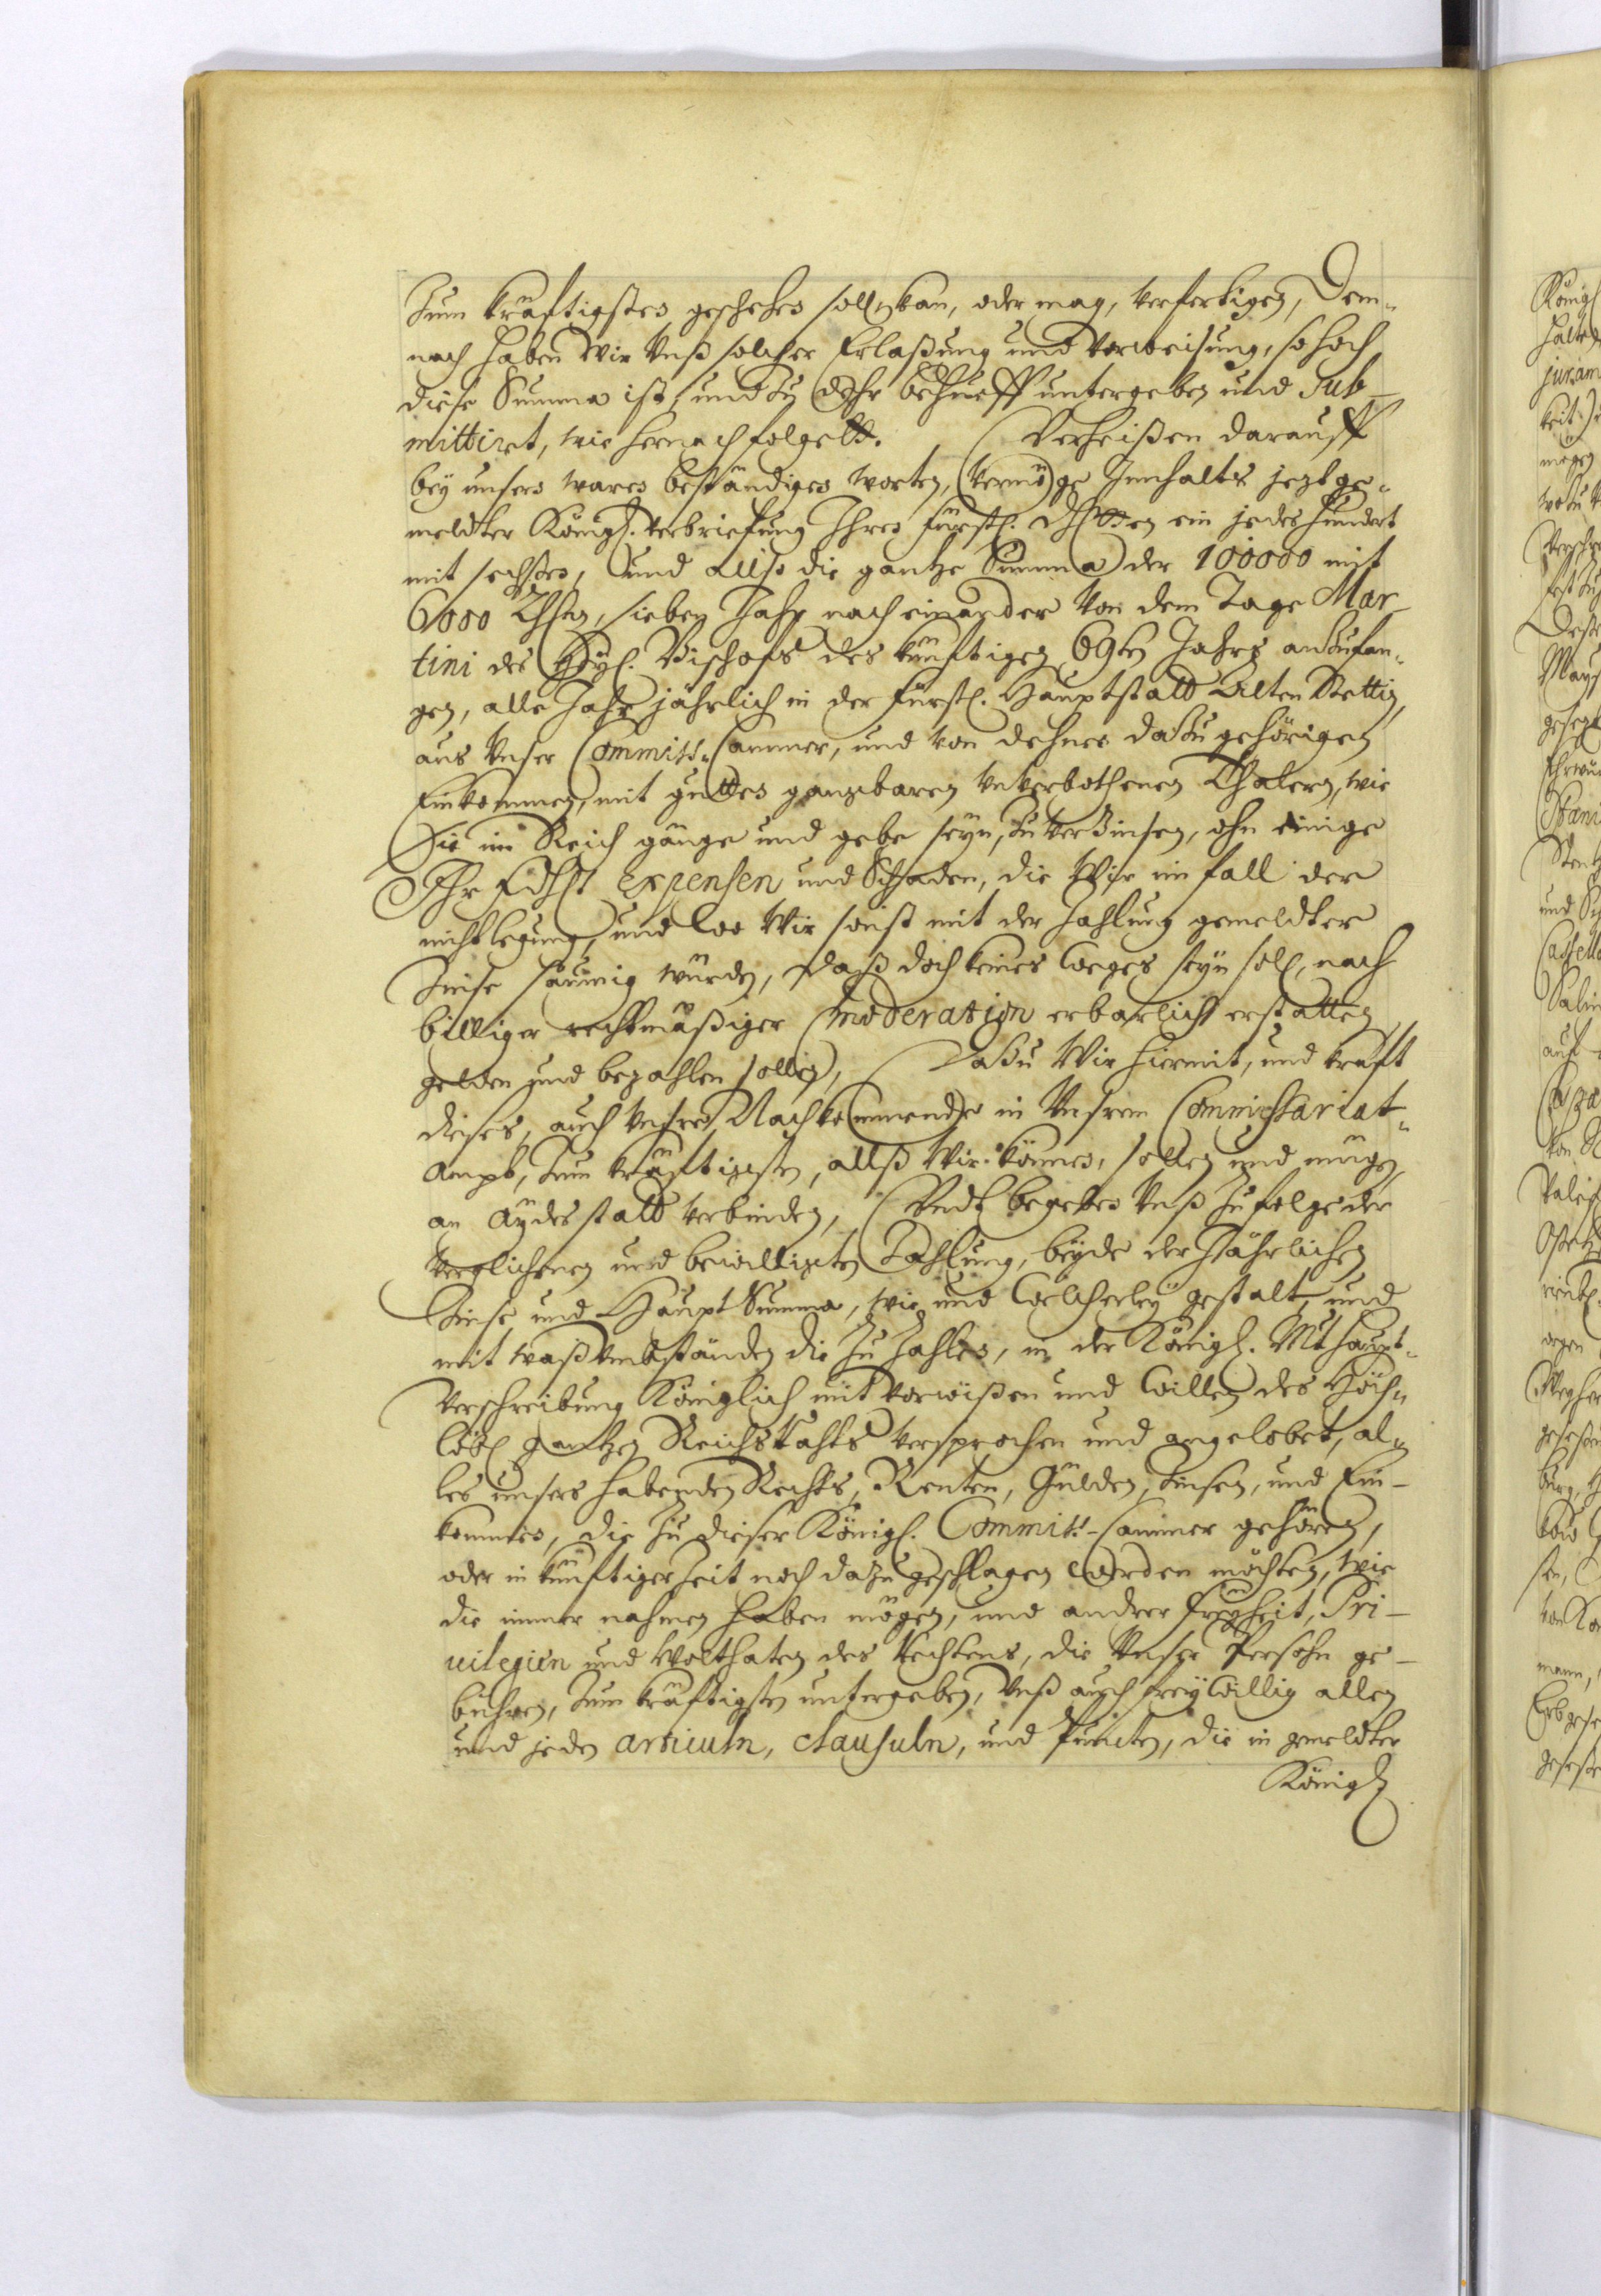 Zum kräftigsten geschehen soll, kan, oder mag, verfertigen, Dem-
nach haben Wir Unß solcher Erlaßung und Verweisung, so hoch
diese Summa ist, und zu der behueff untergeben und sub-
mittiret, wie hernach folgett. Verheißen darauff
bey unsern waren beständigen worten, vermöge Innhalts jezt ge-
meldter Königl. verbriefung Ihren fürstl. ein jedes hundert
mit sechsen, und also die gantze Summa der 100000 mit
6000 Thlrn, sieben Jahr nach einander von dem Tage Mar-
tini des Heyl. Bischofs des künftigen 69ten Jahrs anzufan-
gen, alle Jahr jährlich in der fürstl. Hauptstatt Alten Stettin,
aus Unser Commiss. Cammer, und von dehnen dazu gehörigen
Einkommen, mit gutten gangbaren unverbothenen Thalern, wie
Sie im Reich gänge und gebe seyn, zu verzinsen, ohn einige
Ihr expensen und Schaden, die Wir im fall der
nichtlegung, und wo Wir sonst mit der Zahlung gemeldter
Zinse säumig würden, daß doch keines weges seyn soll, nach
billiger rechtmäßiger moderation erbarlich erstatten
gelden und bezahlen sollen, Dazu Wir hiermit, und kraft
dieses, auch Unsere Nachkommende in Unserem Commissariat-
Ampt, zum kräftigsten, allß Wir können, sollen und mügen
an Aydes statt verbinden, Undt begeben Unß zufolge der
verglichenen und bewilligten Zahlung, beyde der Jährlichen
Zinse und Haupt Summa, wie und welcherley gestalt, und
mit waß umbständen die zu zahlen, in der Königl. Mtt haupt-
Verschreibung Königlich mit vorwißen und willen des Hoch-
löbl gantzen Reichs Rahts versprochen und angelobet, al-
les unsers habenden Rechts, Renten, Gulden, Zinsen, und Ein-
kommen, die zu dieser Königl. Commiss-Cammer gehören,
oder in künftiger Zeit noch dazu geschlagen werden möchten, wie
die immer nahmen haben mögen, und andrer freyheit, Pri-
uilegien und Wolthaten des Rechtens, die Unser Persohn ge-
bühren, zum kräftigsten untergeben, Unß auch freywillig allen
und jeden articuln, clausuln, und Puncten, die in gemeldter
Königl